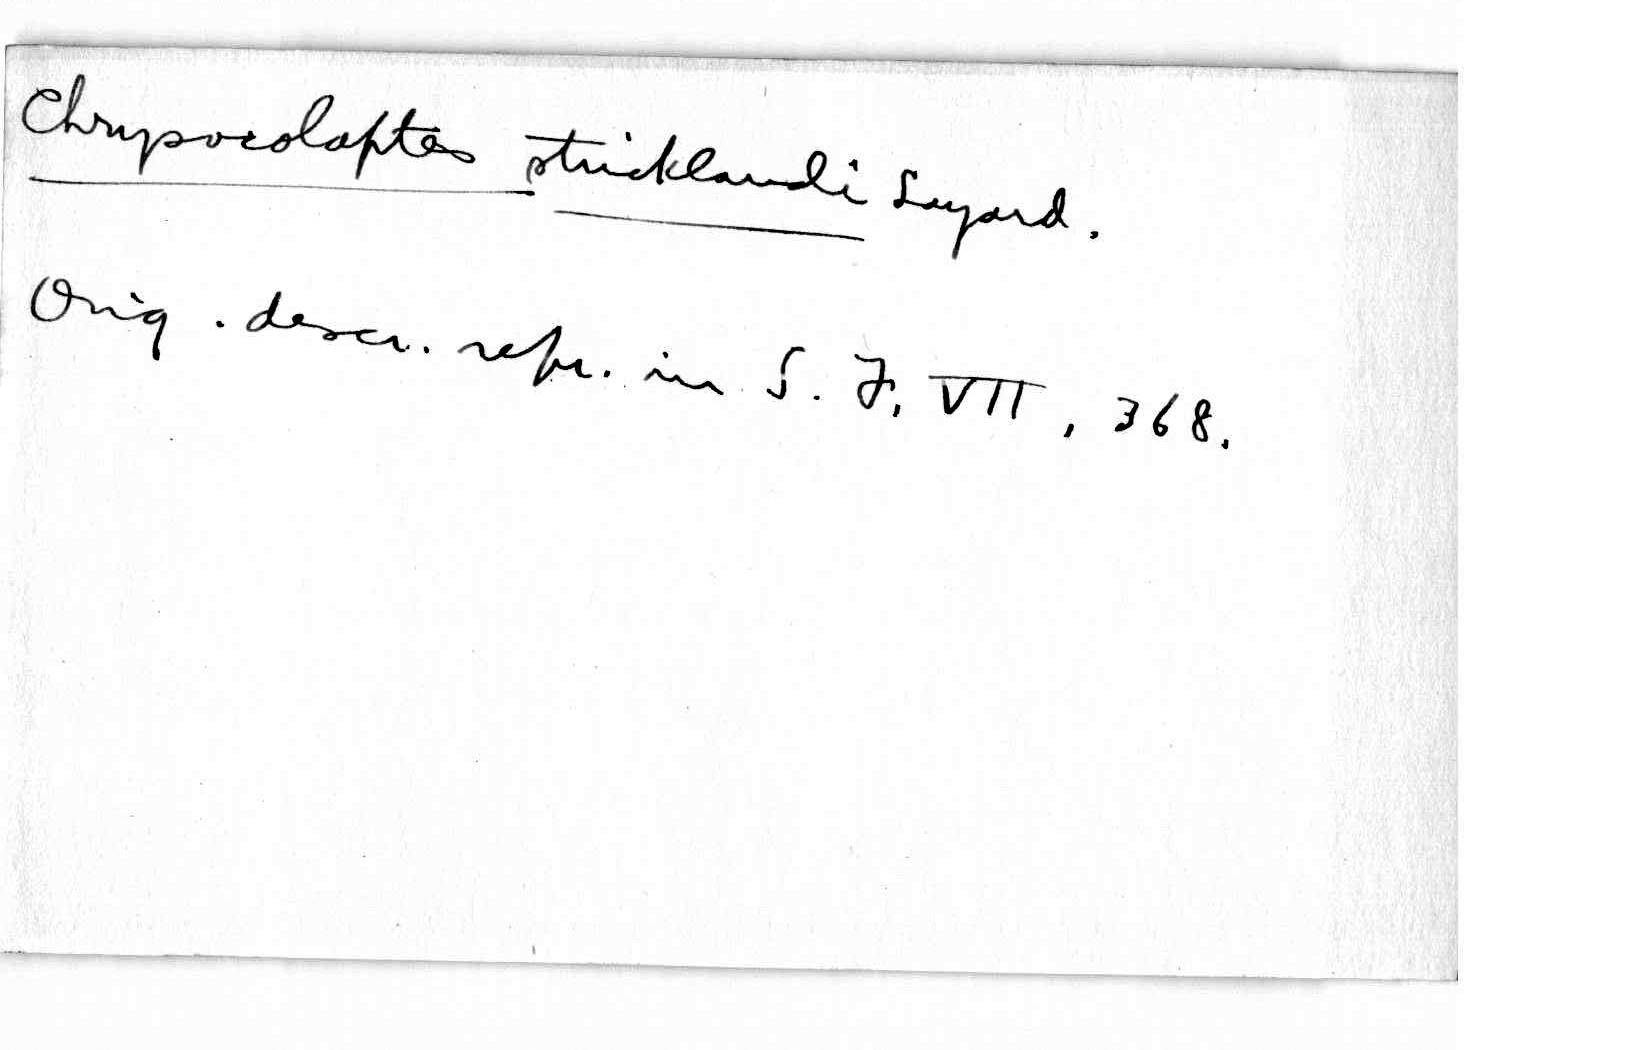 Chrysocolaptes stricklandi Layard.
Orig. descr. repr. in S. F. VII, 368.